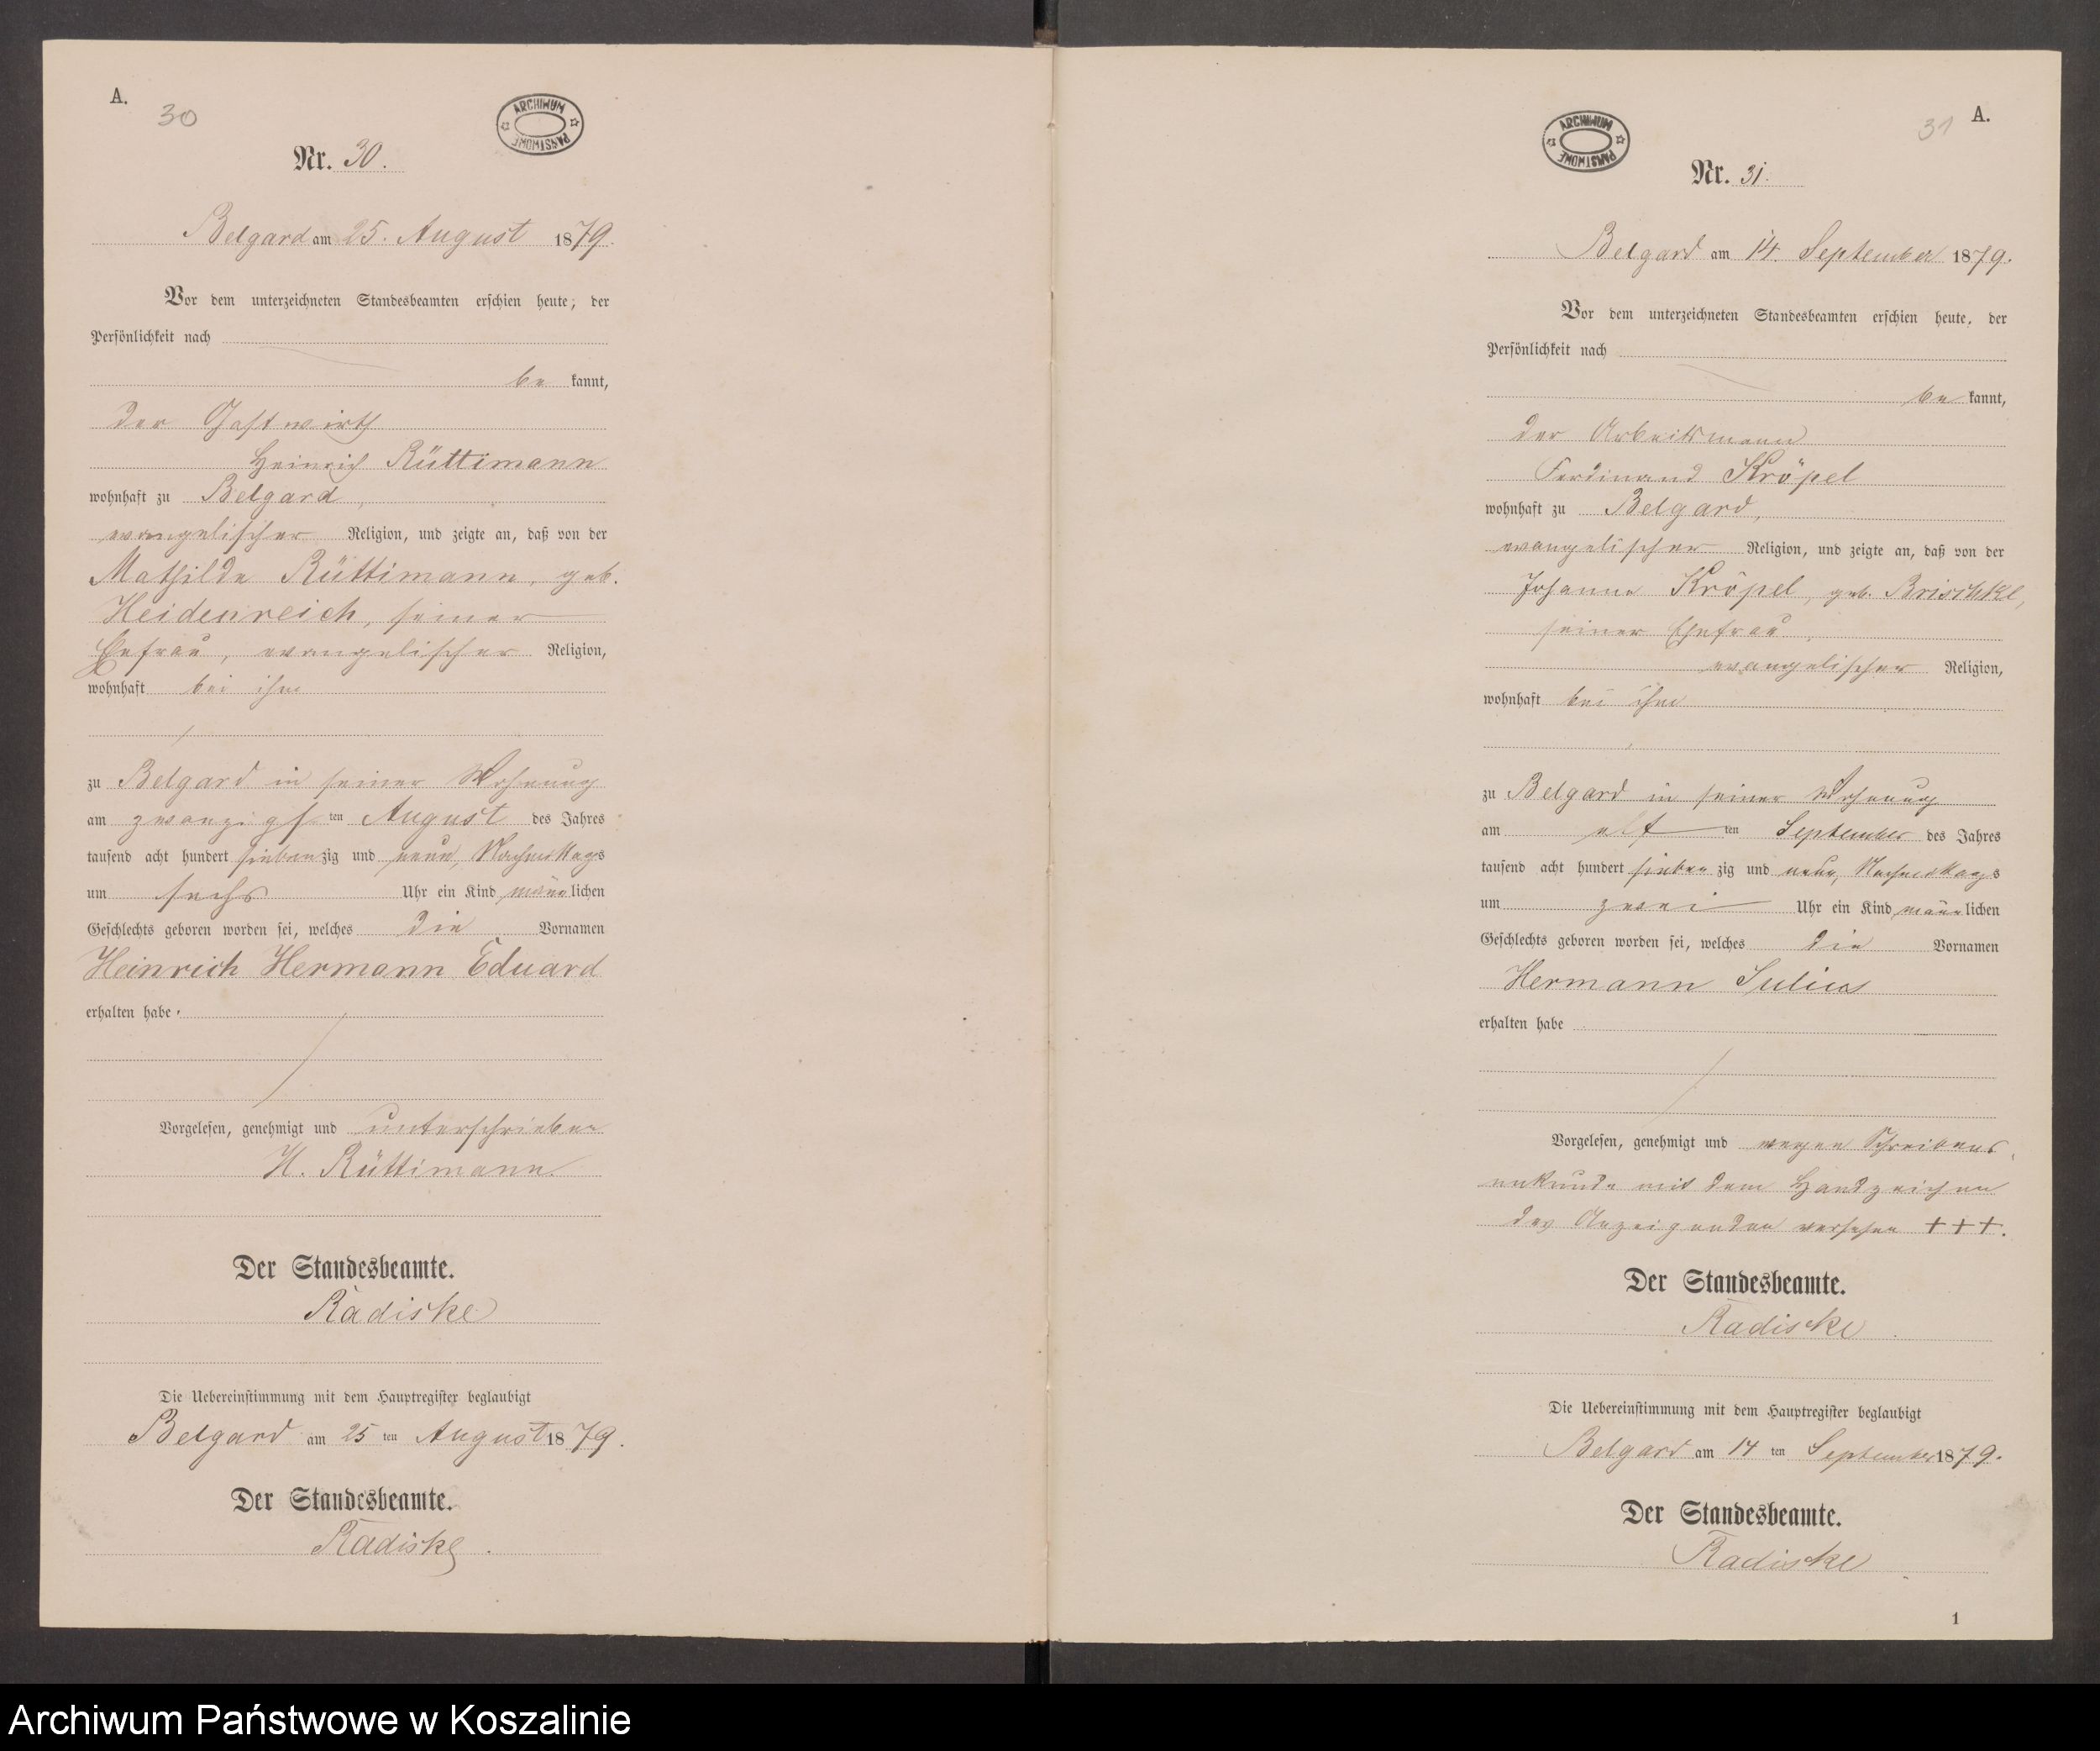 A.
30
ARCHIWUM PAŃSTWOWE
Nr. 30.
Belgard am 25. August 1879.
Vor dem unterzeichneten Standesbeamten erschien heute, der
Persönlichkeit nach
be kannt,
der Gastwirth
Heinrich Rüttimann
wohnhaft zu Belgard,
evangelischer Religion, und zeigte an, daß von der
Mathilde Rüttimann, geb.
Heidenreich, seiner
Ehefrau, evangelischer Religion,
wohnhaft bei ihm
zu Belgard in seiner Wohnung
am zwanzigsten August des Jahres
tausend acht hundert siebenzig und neun, Nachmittags
um sechs Uhr ein Kind männlichen
Geschlechts geboren worden sei, welches die Vornamen
Heinrich Hermann Eduard
erhalten habe.
Vorgelesen, genehmigt und unterschrieben
H. Rüttimann.
Der Standesbeamte.
Radiske
Die Uebereinstimmung mit dem Hauptregister beglaubigt
Belgard am 25 ten August 1879.
Der Standesbeamte.
Radiske.
A.
31
ARCHIWUM PAŃSTWOWE
Nr. 31.
Belgard am 14. September 1879.
Vor dem unterzeichneten Standesbeamten erschien heute, der
Persönlichkeit nach
be kannt,
der Arbeitsmann
Ferdinand Kröpel
wohnhaft zu Belgard,
evangelischer Religion, und zeigte an, daß von der
Johanne Kröpel, geb. Brischke,
seiner Ehefrau,
evangelischer Religion,
wohnhaft bei ihm
zu Belgard in seiner Wohnung
am elf ten September des Jahres
tausend acht hundert siebenzig und neun, Nachmittags
um zwei Uhr ein Kind männlichen
Geschlechts geboren worden sei, welches die Vornamen
Hermann Julius
erhalten habe
Vorgelesen, genehmigt und wegen Schreibens
unkunde mit dem Handzeichen
des Anzeigenden versehen + + +.
Der Standesbeamte.
Radiske
Die Uebereinstimmung mit dem Hauptregister beglaubigt
Belgard am 14 ten September 1879.
Der Standesbeamte.
Radiske
1
Archiwum Państwowe w Koszalinie